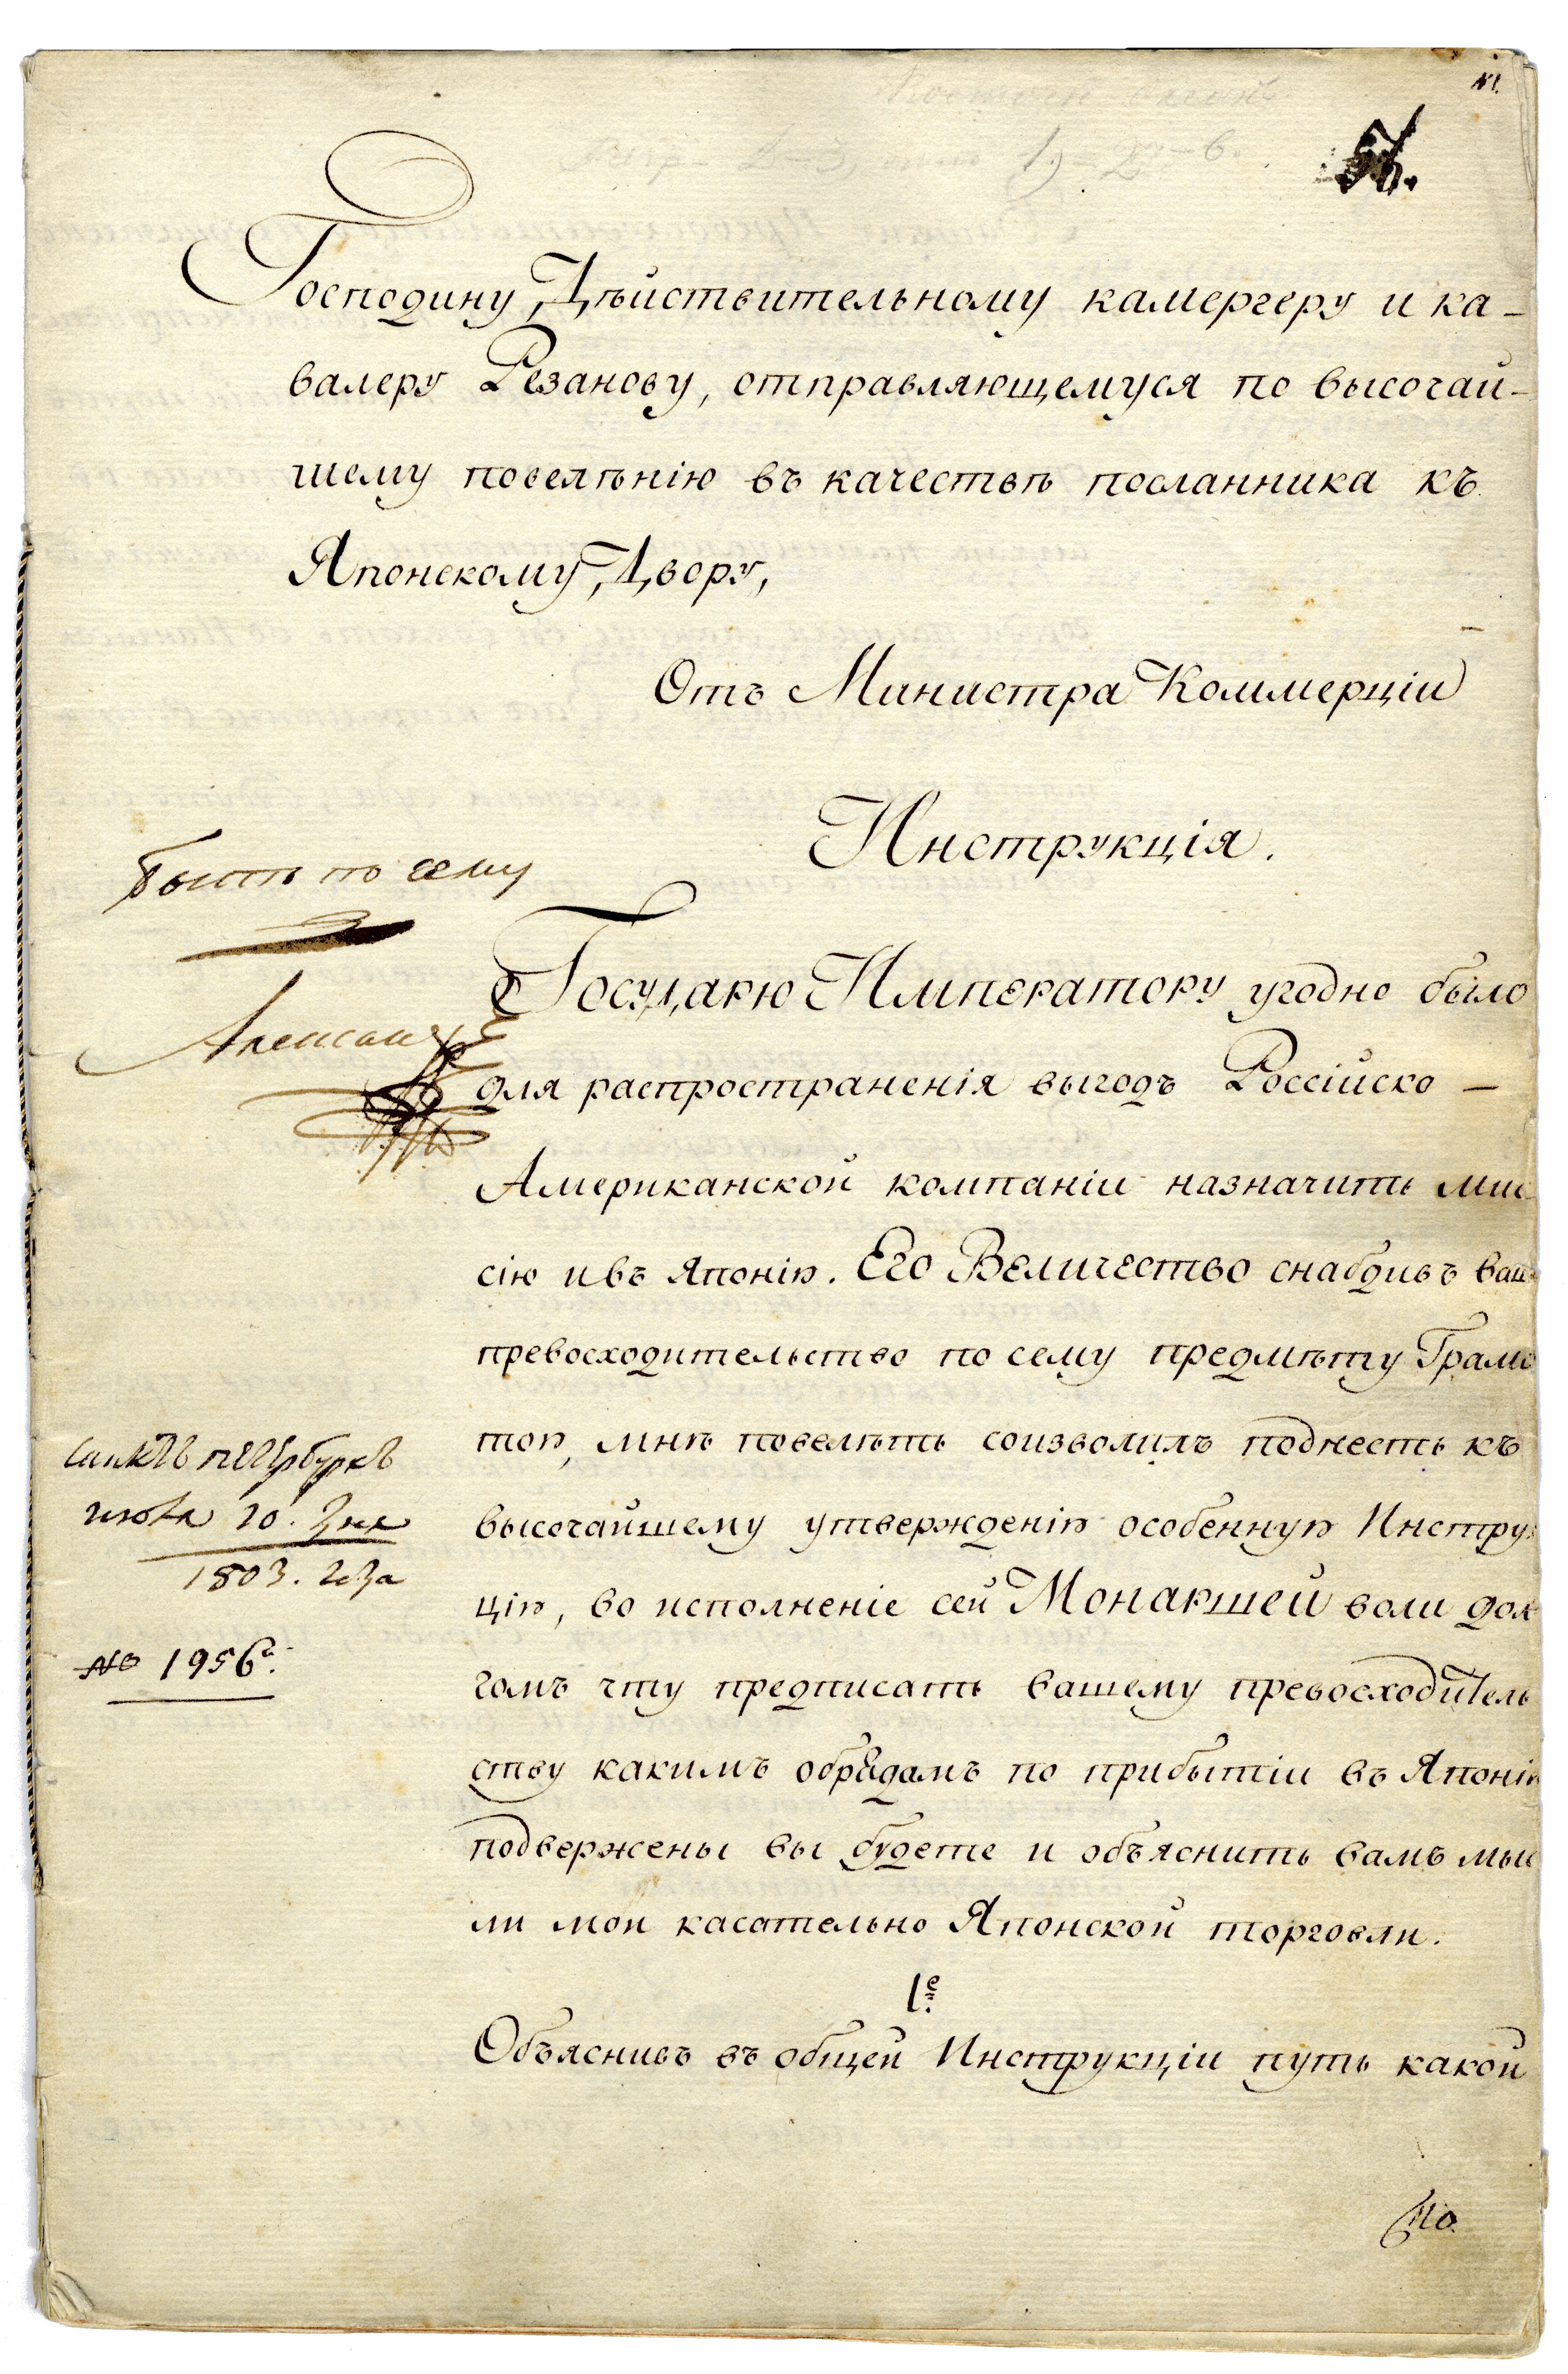 №1.
Господину Дѣйствительному камергеру и ка-
валеру Резанову, отправляющемуся по высочай-
шему повелѣнію въ качествѣ посланника къ
Японскому Двору,
Отъ Министра Коммерціи
Инструкція.
Быть по сему
Александръ
Государю Императору угодно было
для распространенія выгодъ Россійско-
Американской компаніи назначить мис
сію и въ Японію. Его Величество снабдивъ ваше
превосходительство по сему предмѣту Грамо
тою, мнѣ повелѣть соизволилъ поднесть къ
высочайшему утвержденію особенную Инструк
цію, во исполненіе сей Монаршей воли дол
гомъ чту предписать вашему превосходитель
ству какимъ обрядамъ по прибытіи въ Японію
подвержены вы будете и объяснить вамъ мыс
ли мои касательно Японской торговли.
Санктъ петербургъ
июля 10. дня
1803. года
№ 1956.
1е
Объяснивъ въ общей Инструкціи путь какой